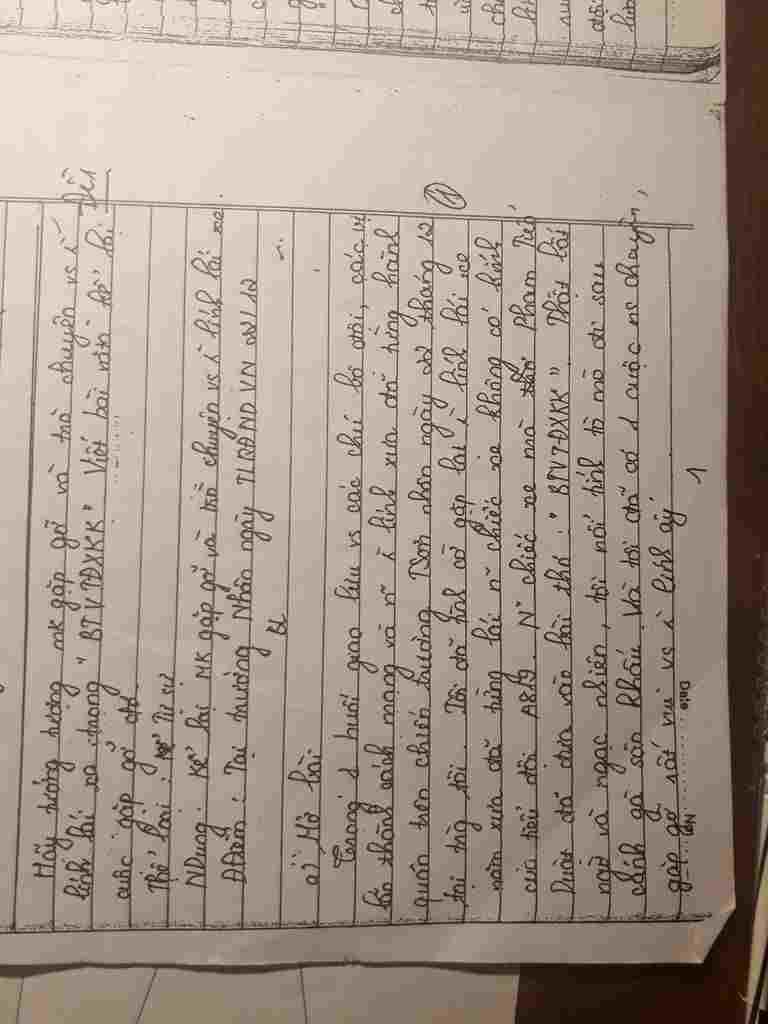 Hãy tưởng tượng mk gặp gỡ và trò chuyện vs ì
lính lái xe trong "BTVTĐXKK" Viết bài văn kể lại
cuộc gặp gỡ đó.
Thể loại: Tự sự
NDung: Kể lại MK gặp gỡ và trò chuyện vs ì lính lái xe.
Đđiểm: Tại trường Nhân ngày TLQĐNDVN 22/12
BL
a) Mở bài
Trong 1 buổi giao lưu vs các chú bộ đội, các vị
lão thành cách mạng và n~ ì lính xưa đã từng hành
quân trên chiến trường TSơn nhân ngày 22 tháng 12
tại trg tôi. Tôi đã tình cờ gặp lại ì lính lái xe
năm xưa đã từng lái n~ chiếc xe không có kính
của tiểu đội . N~ chiếc xe mà Phạm Tiến
Duật đã đưa vào bài thơ: "BTVTĐXKK". Thật bất
ngờ và ngạc nhiên, tôi nổi tính tò mò đi sau
cánh gà sân khấu. Và tôi đã có 1 cuộc nc chuyện,
gặp gỡ rất vui vs ì lính ấy.
1
No
Date